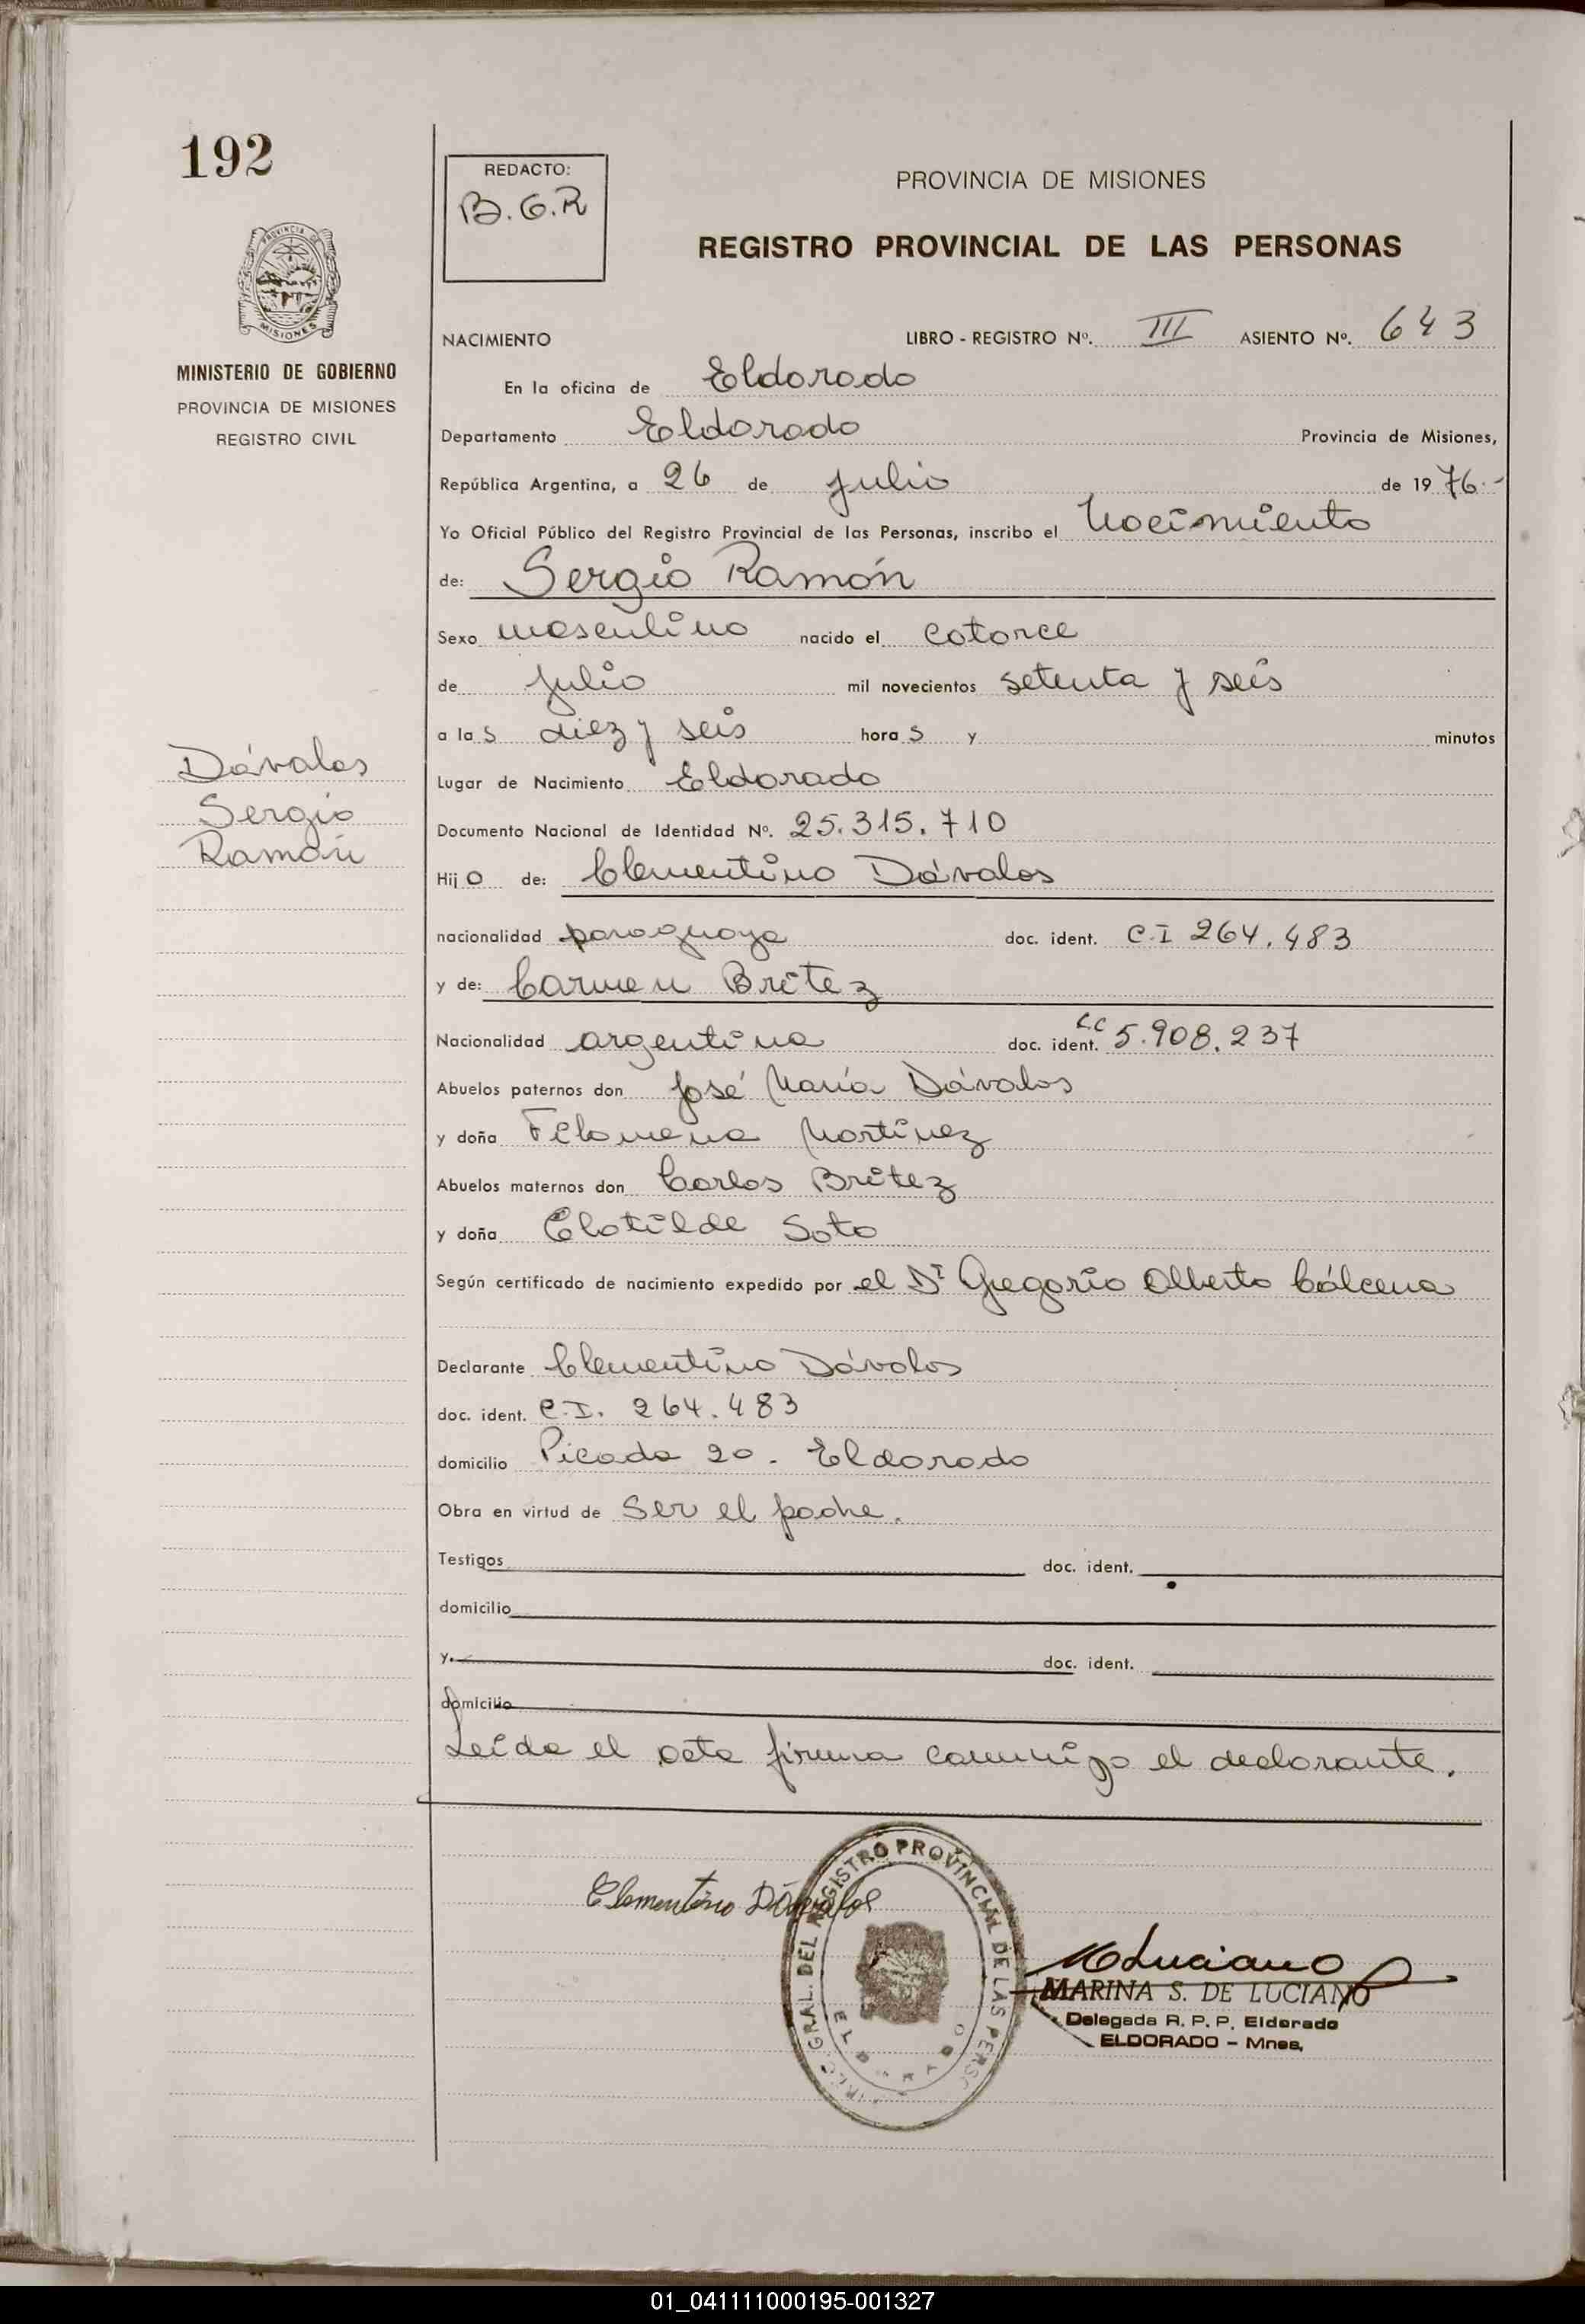 192
REDACTO:
B.G.R
PROVINCIA DE MISIONES
REGISTRO PROVINCIAL DE LAS PERSONAS
PROVINCIA DE
MISIONES
MINISTERIO DE GOBIERNO
PROVINCIA DE MISIONES
REGISTRO CIVIL
NACIMIENTO LIBRO - REGISTRO Nº. III ASIENTO Nº. 643
En la oficina de Eldorado
Departamento Eldorado Provincia de Misiones,
República Argentina, a 26 de julio de 19 76.-
Yo Oficial Público del Registro Provincial de las Personas, inscribo el Nacimiento
de: Sergio Ramón
Sexo masculino nacido el catorce
de julio mil novecientos setenta y seis
a la s diez y seis hora s y minutos
Lugar de Nacimiento Eldorado
Dávalos
Sergio
Ramón
Documento Nacional de Identidad Nº. 25.315.710
Hij o de: Clementino Dávalos
nacionalidad paraguaya doc. ident. C.I 264.483
y de: Carmen Britez
Nacionalidad argentina doc. ident. L.C 5.908.237
Abuelos paternos don José María Dávalos
y doña Filomena Martínez
Abuelos maternos don Carlos Britez
y doña Clotilde Soto
Según certificado de nacimiento expedido por el Dr Gregorio Alberto Cálcena
Declarante Clementino Dávalos
doc. ident. C.I. 264.483
domicilio Picada 20. Eldorado
Obra en virtud de ser el padre.
Testigos doc. ident.
domicilio
y doc. ident.
domicilio
Leída el acta firma conmigo el declarante.
Clementino Dávalos
GRAL. DEL REGISTRO PROVINCIAL DE LAS PERSO
MLuciano
MARINA S. DE LUCIANO
Delegada R. P. P. Eldorado
ELDORADO - Mnes,
01_041111000195-001327